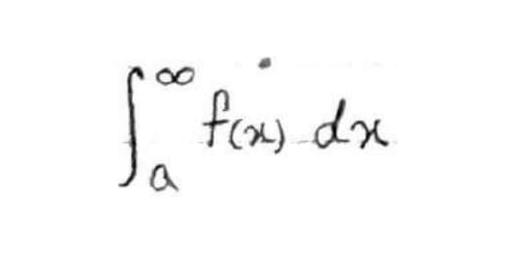 ∫_a^∞ f(x) dx